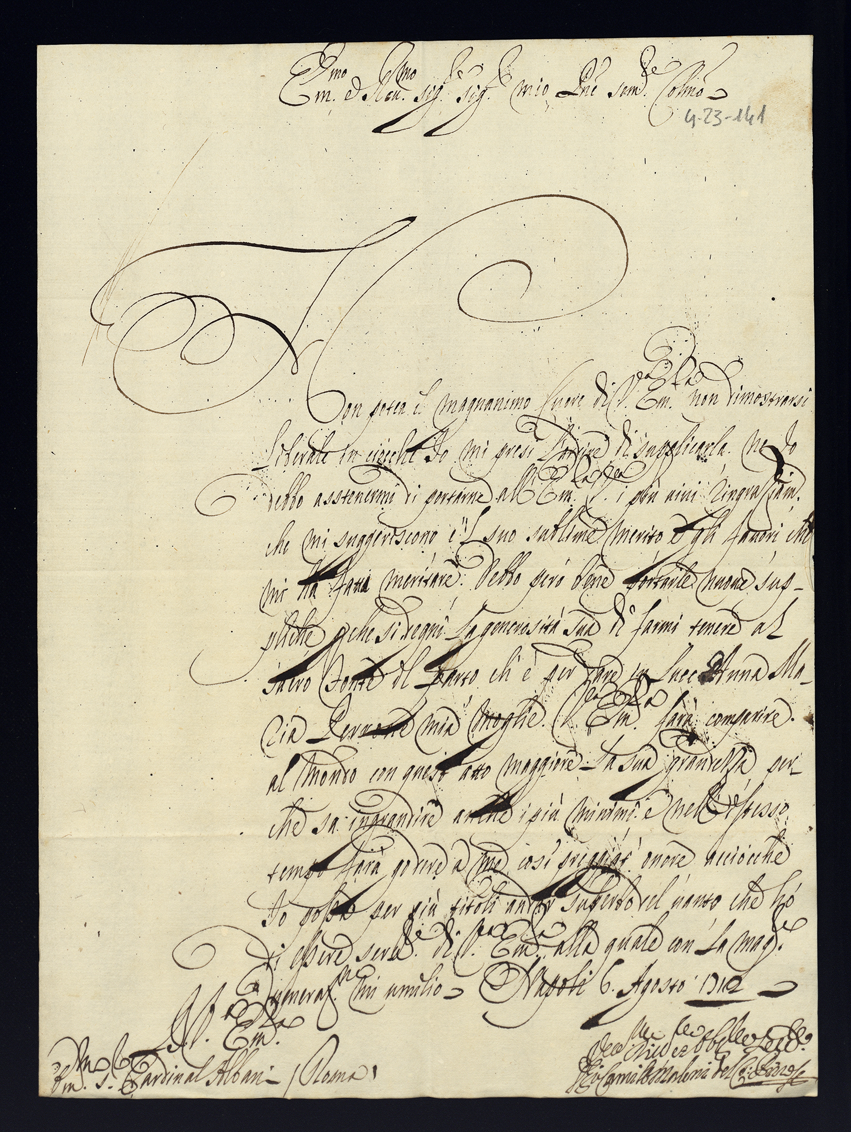 Em.mo e Rev.mo Sig.re Sig.re mio P.ne sem.e Colmo
4-23-141
Non potea il magnanimo Cuore di V. Em.za non dimostrarsi
liberale in ciocche Io mi presi l'ardire di supplicarla. ne Io
debbo asstenermi di portarne all' Em.za V. i più vivi ringraziam.
che mi suggeriscono e 'l suo sublime merito e gli favori che
mi ha fatti meritare. Debbo però bene portarle nuove sup-
pliche che si degni la generosità sua di farmi tenere al
sacro Fonte il parto ch'è per dare in luce Anna Ma-
ria mia moglie. V. Em.za farà comparire
al Mondo con quest' atto maggiore la sua grandezza per
che sa ingrandire anche i più minimi e nell' istesso
tempo farà godere à me così preggiat' onore acciocche
Io possa per più titoli andar superbo del vanto che hò
di essere ser.e di V. Em.za alla quale con la mag.e
mi umilio Napoli 6. Agosto 1712
D. V. Em.za
Em.mo S. Cardinal Albani Roma